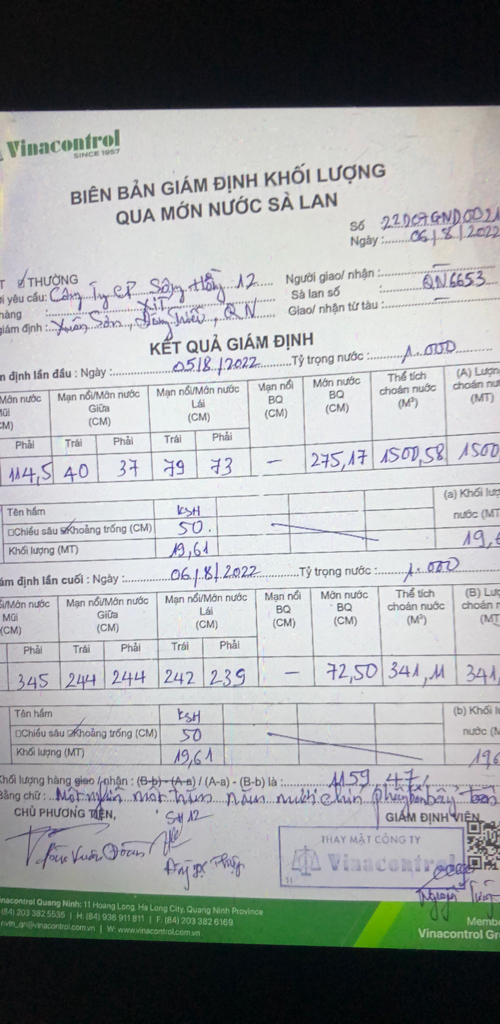 Vinacontrol
SINCE 1957
BIÊN BẢN GIÁM ĐỊNH KHỐI LƯỢNG
QUA MỚN NƯỚC SÀ LAN
Số 22D07GND0021
Ngày : 06/8/2022
THƯỜNG
i yêu cầu: Công Ty CP Sông Hồng 12
Người giao/ nhận : —
hàng XIT
Sà lan số QN6653
giám định : Xuân Sơn, Đông Triều, QN
Giao/ nhận từ tàu : —
KẾT QUẢ GIÁM ĐỊNH
m định lần đầu : Ngày : 05/8/2022 Tỷ trọng nước : 1.000
Mớn nước Mũi CM) Mạn nổi/Mớn nước Giữa (CM) Mạn nổi/Mớn nước Lái (CM) Mạn nổi BQ (CM) Mớn nước BQ (CM) Thể tích choán nước (M³) (A) Lượng choán nư (MT)
Phải Trái Phải Trái Phải
114,5 40 37 79 73 — 275,17 1500,58 1500
Tên hầm KSH (a) Khối lượ
□Chiều sâu ☑Khoảng trống (CM) 50. nước (MT
Khối lượng (MT) 19,61 19,6
ám định lần cuối : Ngày : 06/8/2022 Tỷ trọng nước : 1.000
ổi/Mớn nước Mũi (CM) Mạn nổi/Mớn nước Giữa (CM) Mạn nổi/Mớn nước Lái (CM) Mạn nổi BQ (CM) Mớn nước BQ (CM) Thể tích choán nước (M³) (B) Lượ choán n (MT)
Phải Trái Phải Trái Phải
345 244 244 242 239 — 72,50 341,11 341,
Tên hầm KSH (b) Khối l
□Chiều sâu ☑Khoảng trống (CM) 50 nước (M
Khối lượng (MT) 19,61 19,6
Khối lượng hàng giao / nhận : (B-b) - (A-a) / (A-a) - (B-b) là : 1159,47
Bằng chữ : Một nghìn một trăm năm mươi chín phẩy bốn bảy tấn
CHỦ PHƯƠNG TIỆN, SH 12 GIÁM ĐỊNH VIÊN
THAY MẶT CÔNG TY
Vinacontrol
Nguyễn
nacontrol Quang Ninh: 11 Hoang Long, Ha Long City, Quang Ninh Province
(84) 203 382 5535 | H: (84) 936 911 811 | F: (84) 203 382 6169
nvtn_qn@vinacontrol.com.vn | W: www.vinacontrol.com.vn
Membe
Vinacontrol Gr